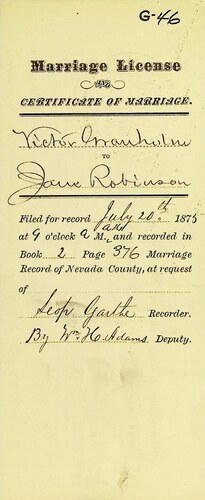 G-46
Marriage License
AND
CERTIFICATE OF MARRIAGE.
Victor Granholm
TO
Jane Robinson
Filed for record July 20th 1875
at 9 o'clock A M., and recorded in
Book 2 Page 376 Marriage
Record of Nevada County, at request
of
Leop Garthe Recorder.
By Wm H Adams Deputy.